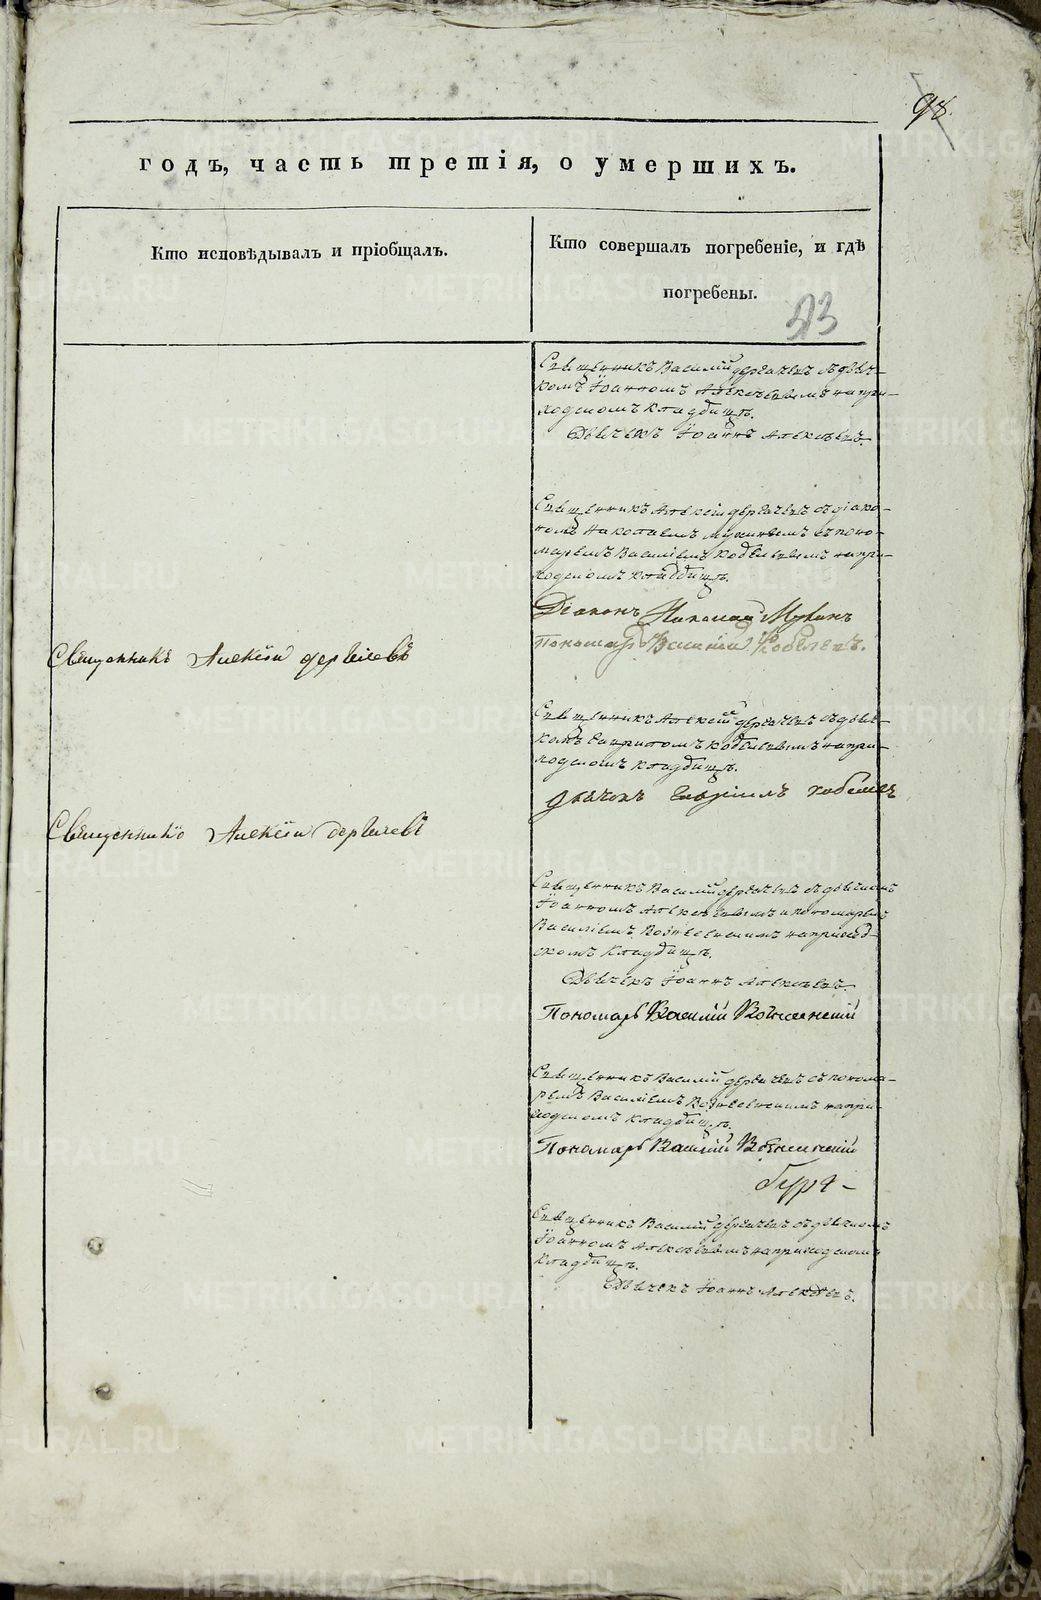 98.
годъ, часть третія, о умершихъ.
Кто исповѣдывалъ и пріобщалъ.
Кто совершалъ погребеніе, и гдѣ
погребены.
Священникъ Василій съ дьяч-
комъ Іоанномъ Алексѣевымъ на при-
ходскомъ кладбищѣ.
Дьячекъ Іоаннъ Алексѣевъ.
Священникъ Алексій съ діако-
номъ Николаемъ Мухинымъ съ поно-
маремъ Василіемъ Кобелевымъ на при-
ходскомъ кладбищѣ.
Діаконъ Николай Мухинъ
Пономарь Василій Кобелевъ.
Священникъ Алексій
Священникъ Алексій съ дьяч-
комъ Кобелевымъ на при-
ходскомъ кладбищѣ.
дьячокъ Кобелев
Священникъ Алексій
Священникъ Василій съ дьячкомъ
Іоанномъ Алексѣевымъ и пономаремъ
Василіемъ Вознесенскимъ на приход-
скомъ кладбищѣ.
Дьячекъ Іоаннъ Алексѣевъ.
Пономарь Василій Вознесенскій
Священникъ Василій съ понома-
ремъ Василіемъ Вознесенскимъ на при-
ходскомъ кладбищѣ.
Пономарь Василій Вознесенскій
Священникъ Василій съ дьячкомъ
Іоанномъ Алексѣевымъ на приходскомъ
кладбищѣ.
Дьячекъ Іоаннъ Алексѣевъ.
METRIKI.GASO-URAL.RU